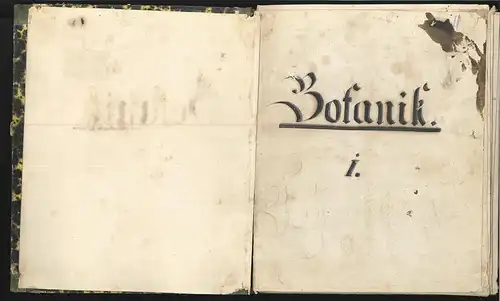 Botanik.
I.